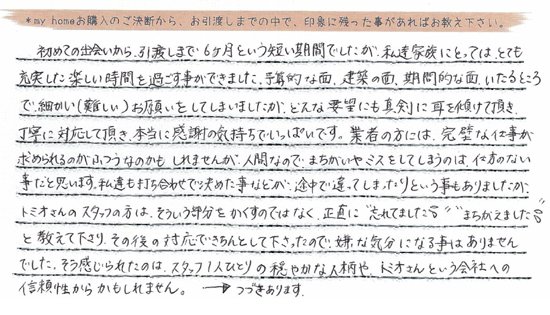 *my homeお購入のご決断から、お引渡しまでの中で、印象に残った事があればお教え下さい。
初めての出会いから、引渡しまで6ヶ月という短い期間でしたが、私達家族にとっては、とても
充実した楽しい時間を過ごす事ができました。予算的な面、建築の面、期間的な面、いたるところ
で、細かい(難しい)お願いをしてしまいましたが、どんな要望にも真剣に耳を傾けて頂き、
丁寧に対応して頂き、本当に感謝の気持ちでいっぱいです。業者の方には、完璧な仕事が
求められるのがふつうなのかもしれませんが、人間なので、まちがいやミスをしてしまうのは、仕方のない
事だと思います。私達も打ち合わせで決めた事などが、途中で違ってしまったりという事もありましたが、
トミオさんのスタッフの方は、そういう部分をかくすのではなく、正直に"忘れてました""まちがえました"
と教えて下さり、その後の対応できちんとして下さったので、嫌な気分になる事はありません
でした。そう感じられたのは、スタッフ1人ひとりの穏やかな人柄や、トミオさんという会社への
信頼性からかもしれません。 → つづきあります。